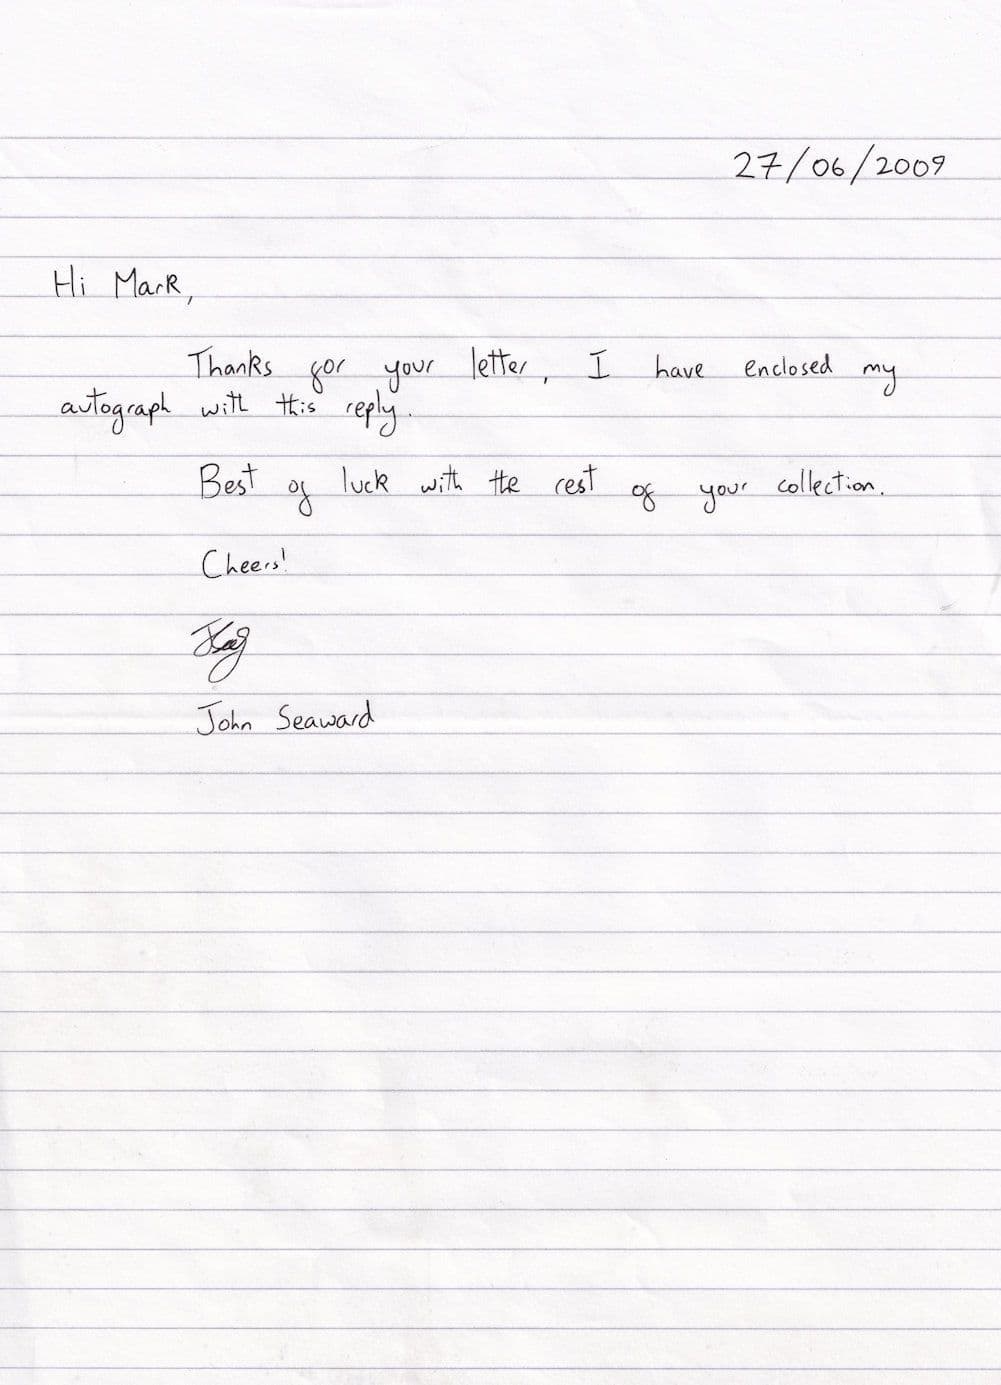 27/06/2009
Hi Mark,
Thanks for your letter, I have enclosed my
autograph with this reply.
Best of luck with the rest of your collection.
Cheers!
John Seaward